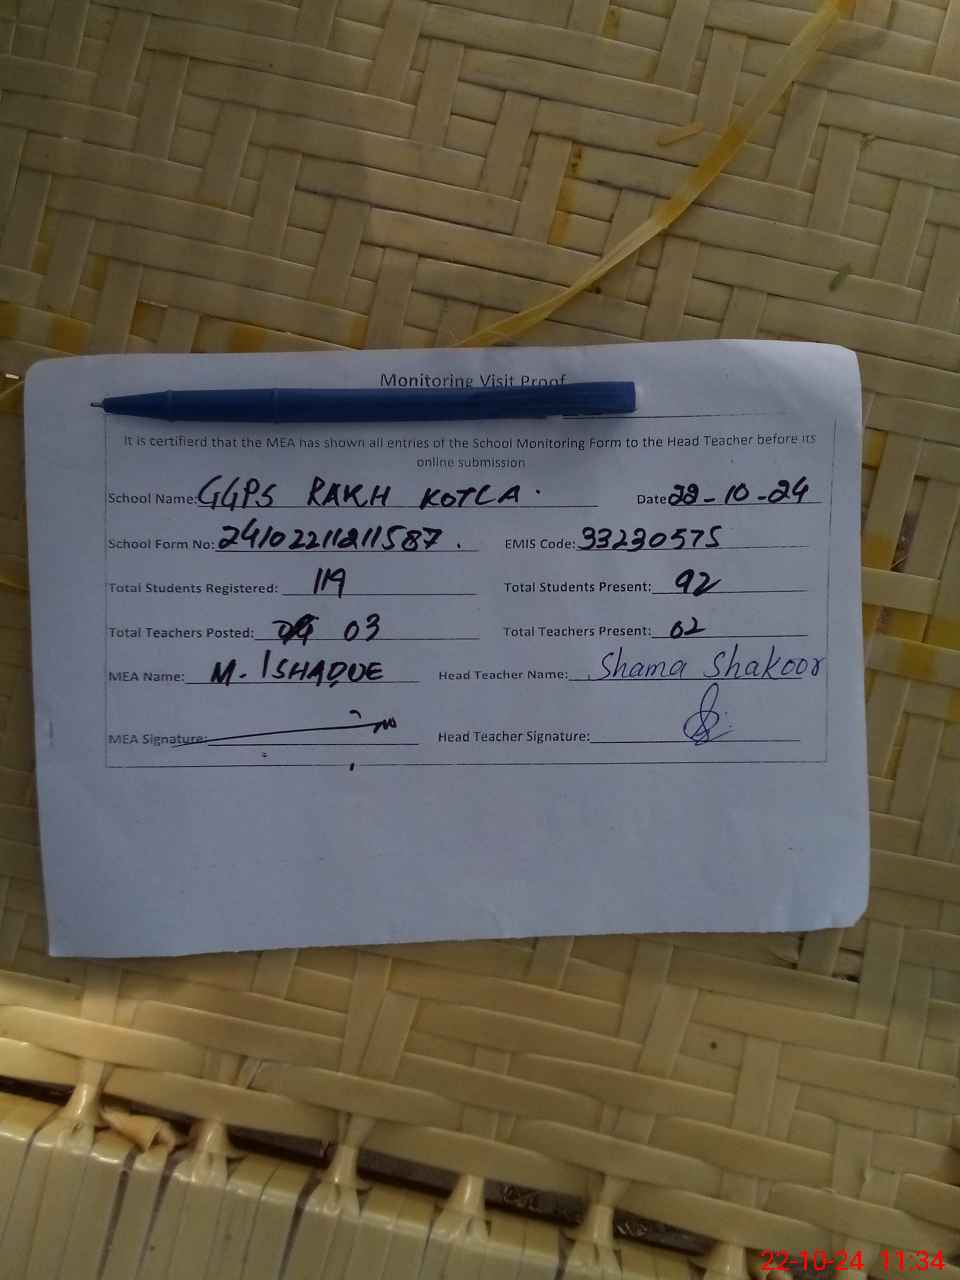 Monitoring Visit Proof
It is certifierd that the MEA has shown all entries of the School Monitoring Form to the Head Teacher before its
online submission
School Name: GGPS RAKH KOTLA. Date 22-10-24
School Form No: 24102211211587. EMIS Code: 33230575
Total Students Registered: 119 Total Students Present: 92
Total Teachers Posted: 03 Total Teachers Present: 02
MEA Name: M. ISHAQUE Head Teacher Name: Shama Shakoor
MEA Signature: Head Teacher Signature:
22-10-24 11:34